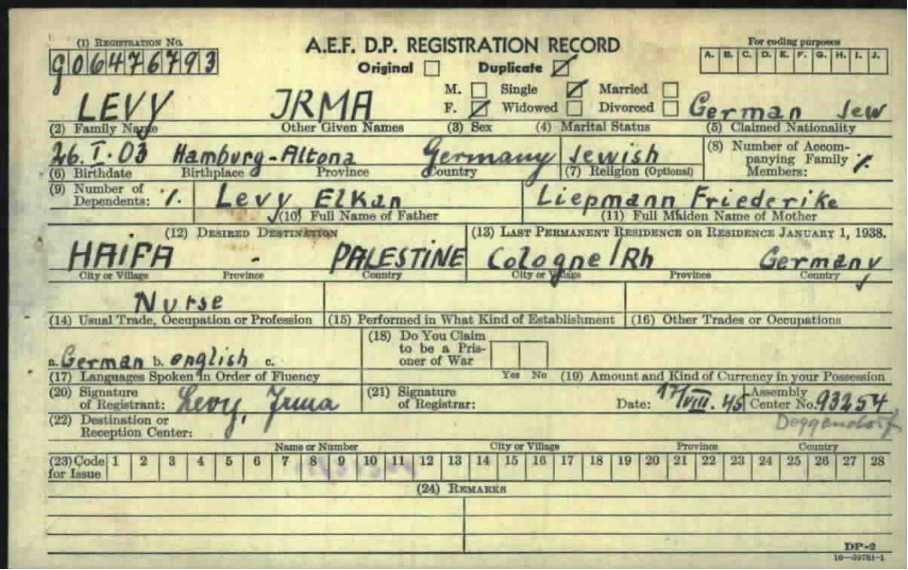 (1) REGISTRATION NO.
G06476793
A.E.F. D.P. REGISTRATION RECORD
Original Duplicate
For coding purposes
A. B. C. D. E. F. G. H. I. J.
M. Single Married
F. Widowed Divorced
LEVY IRMA German Jew
(2) Family Name Other Given Names (3) Sex (4) Marital Status (5) Claimed Nationality
26.I.03 Hamburg-Altona Germany Jewish
(6) Birthdate Birthplace Province Country (7) Religion (Optional)
(8) Number of Accom-
panying Family
Members: %
(9) Number of
Dependents: %
Levy Elkan Liepmann Friederike
(10) Full Name of Father (11) Full Maiden Name of Mother
(12) DESIRED DESTINATION (13) LAST PERMANENT RESIDENCE OR RESIDENCE JANUARY 1, 1938.
HAIFA - PALESTINE Cologne/Rh Germany
City or Village Province Country City or Village Province Country
Nurse
(14) Usual Trade, Occupation or Profession (15) Performed in What Kind of Establishment (16) Other Trades or Occupations
a. German b. english c.
(17) Languages Spoken in Order of Fluency
(18) Do You Claim
to be a Pris-
oner of War
Yes No (19) Amount and Kind of Currency in your Possession
(20) Signature
of Registrant: Levy, Irma
(21) Signature
of Registrar:
Date: 17/VIII. 45 Assembly
Center No. 93254
Deggendorf
(22) Destination or
Reception Center:
Name or Number City or Village Province Country
(23) Code
for Issue
1 2 3 4 5 6 7 8 9 10 11 12 13 14 15 16 17 18 19 20 21 22 23 24 25 26 27 28
(24) REMARKS
DP-2
16—39781-1